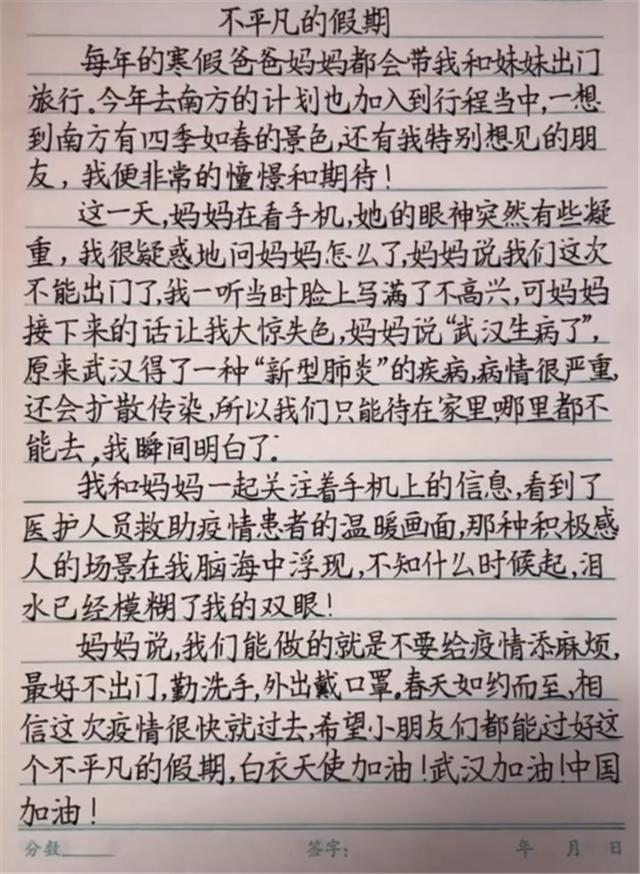 不平凡的假期
每年的寒假爸爸妈妈都会带我和妹妹出门
旅行。今年去南方的计划也加入到行程当中,一想
到南方有四季如春的景色,还有我特别想见的朋
友，我便非常的憧憬和期待！
这一天,妈妈在看手机,她的眼神突然有些凝
重，我很疑惑地问妈妈怎么了,妈妈说我们这次
不能出门了,我一听当时脸上写满了不高兴,可妈妈
接下来的话让我大惊失色,妈妈说“武汉生病了”,
原来武汉得了一种“新型肺炎”的疾病,病情很严重,
还会扩散传染,所以我们只能待在家里,哪里都不
能去,我瞬间明白了。
我和妈妈一起关注着手机上的信息,看到了
医护人员救助疫情患者的温暖画面,那种积极感
人的场景在我脑海中浮现,不知什么时候起,泪
水已经模糊了我的双眼！
妈妈说,我们能做的就是不要给疫情添麻烦,
最好不出门,勤洗手,外出戴口罩。春天如约而至,相
信这次疫情很快就过去,希望小朋友们都能过好这
个不平凡的假期,白衣天使加油！武汉加油！中国
加油！
分数____ 签字： 年 月 日